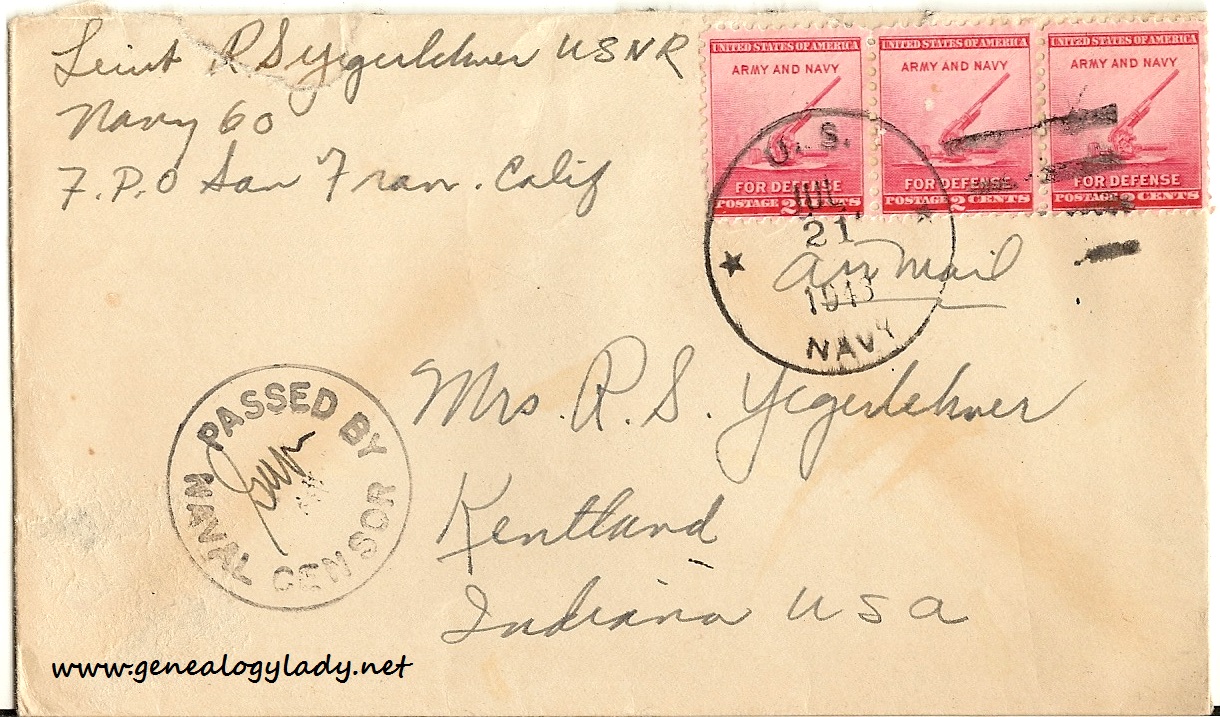 Leiut R S Yegerlehner USNR
Navy 60
F.P.O San Fran. Calif
UNITED STATES OF AMERICA UNITED STATES OF AMERICA UNITED STATES OF AMERICA
ARMY AND NAVY ARMY AND NAVY ARMY AND NAVY
FOR DEFENSE FOR DEFENSE FOR DEFENSE
POSTAGE 2 CENTS POSTAGE 2 CENTS POSTAGE 2 CENTS
U. S.
JUL
21
1943
NAVY
Air Mail
Mrs. R. S. Yegerlehner
Kentland
Indiana USA
PASSED BY
NAVAL CENSOR
www.genealogylady.net